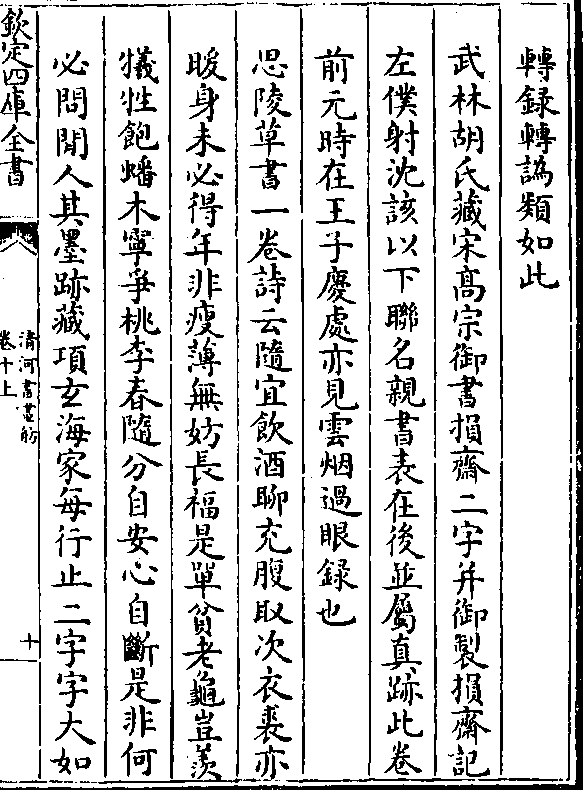 轉録轉譌類如此
武林胡氏藏宋髙宗御書損齋二字并御製損齋記
左僕射沈該以下聯名親書表在後並屬真跡此卷
前元時在王子慶處亦見雲烟過眼録也
思陵草書一卷詩云隨宜飲酒聊充腹取次衣裘亦
暖身未必得年非瘦薄無妨長福是單貧老龜豈羨
犧牲飽蟠木寧爭桃李春隨分自安心自斷是非何
必問閒人其墨跡藏項玄海家每行止二字字大如
欽定四庫全書
清河書畫舫
卷十上
十